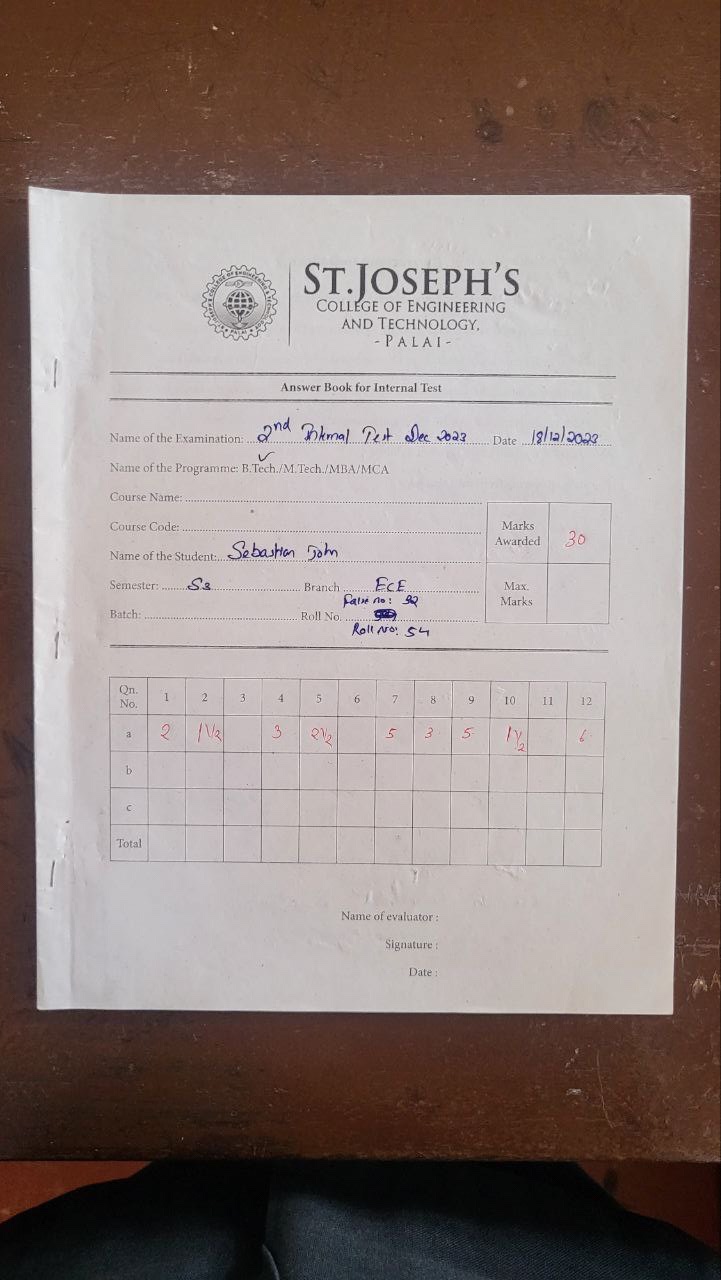 ST.JOSEPH'S
COLLEGE OF ENGINEERING
AND TECHNOLOGY,
- PALAI -
Answer Book for Internal Test
Name of the Examination: 2nd Internal Test Dec 2023 Date 18/12/2023
Name of the Programme: B.Tech./M.Tech./MBA/MCA
Course Name:
Course Code:
Marks Awarded 30
Name of the Student: Sebastian John
Semester: S3 Branch ECE
Max. Marks
False no: 32
Batch: Roll No.
Roll No: 54
Qn. No. 1 2 3 4 5 6 7 8 9 10 11 12
a 2 1 1/2 3 2 1/2 5 3 5 1 1/2 6
b
c
Total
Name of evaluator :
Signature :
Date :